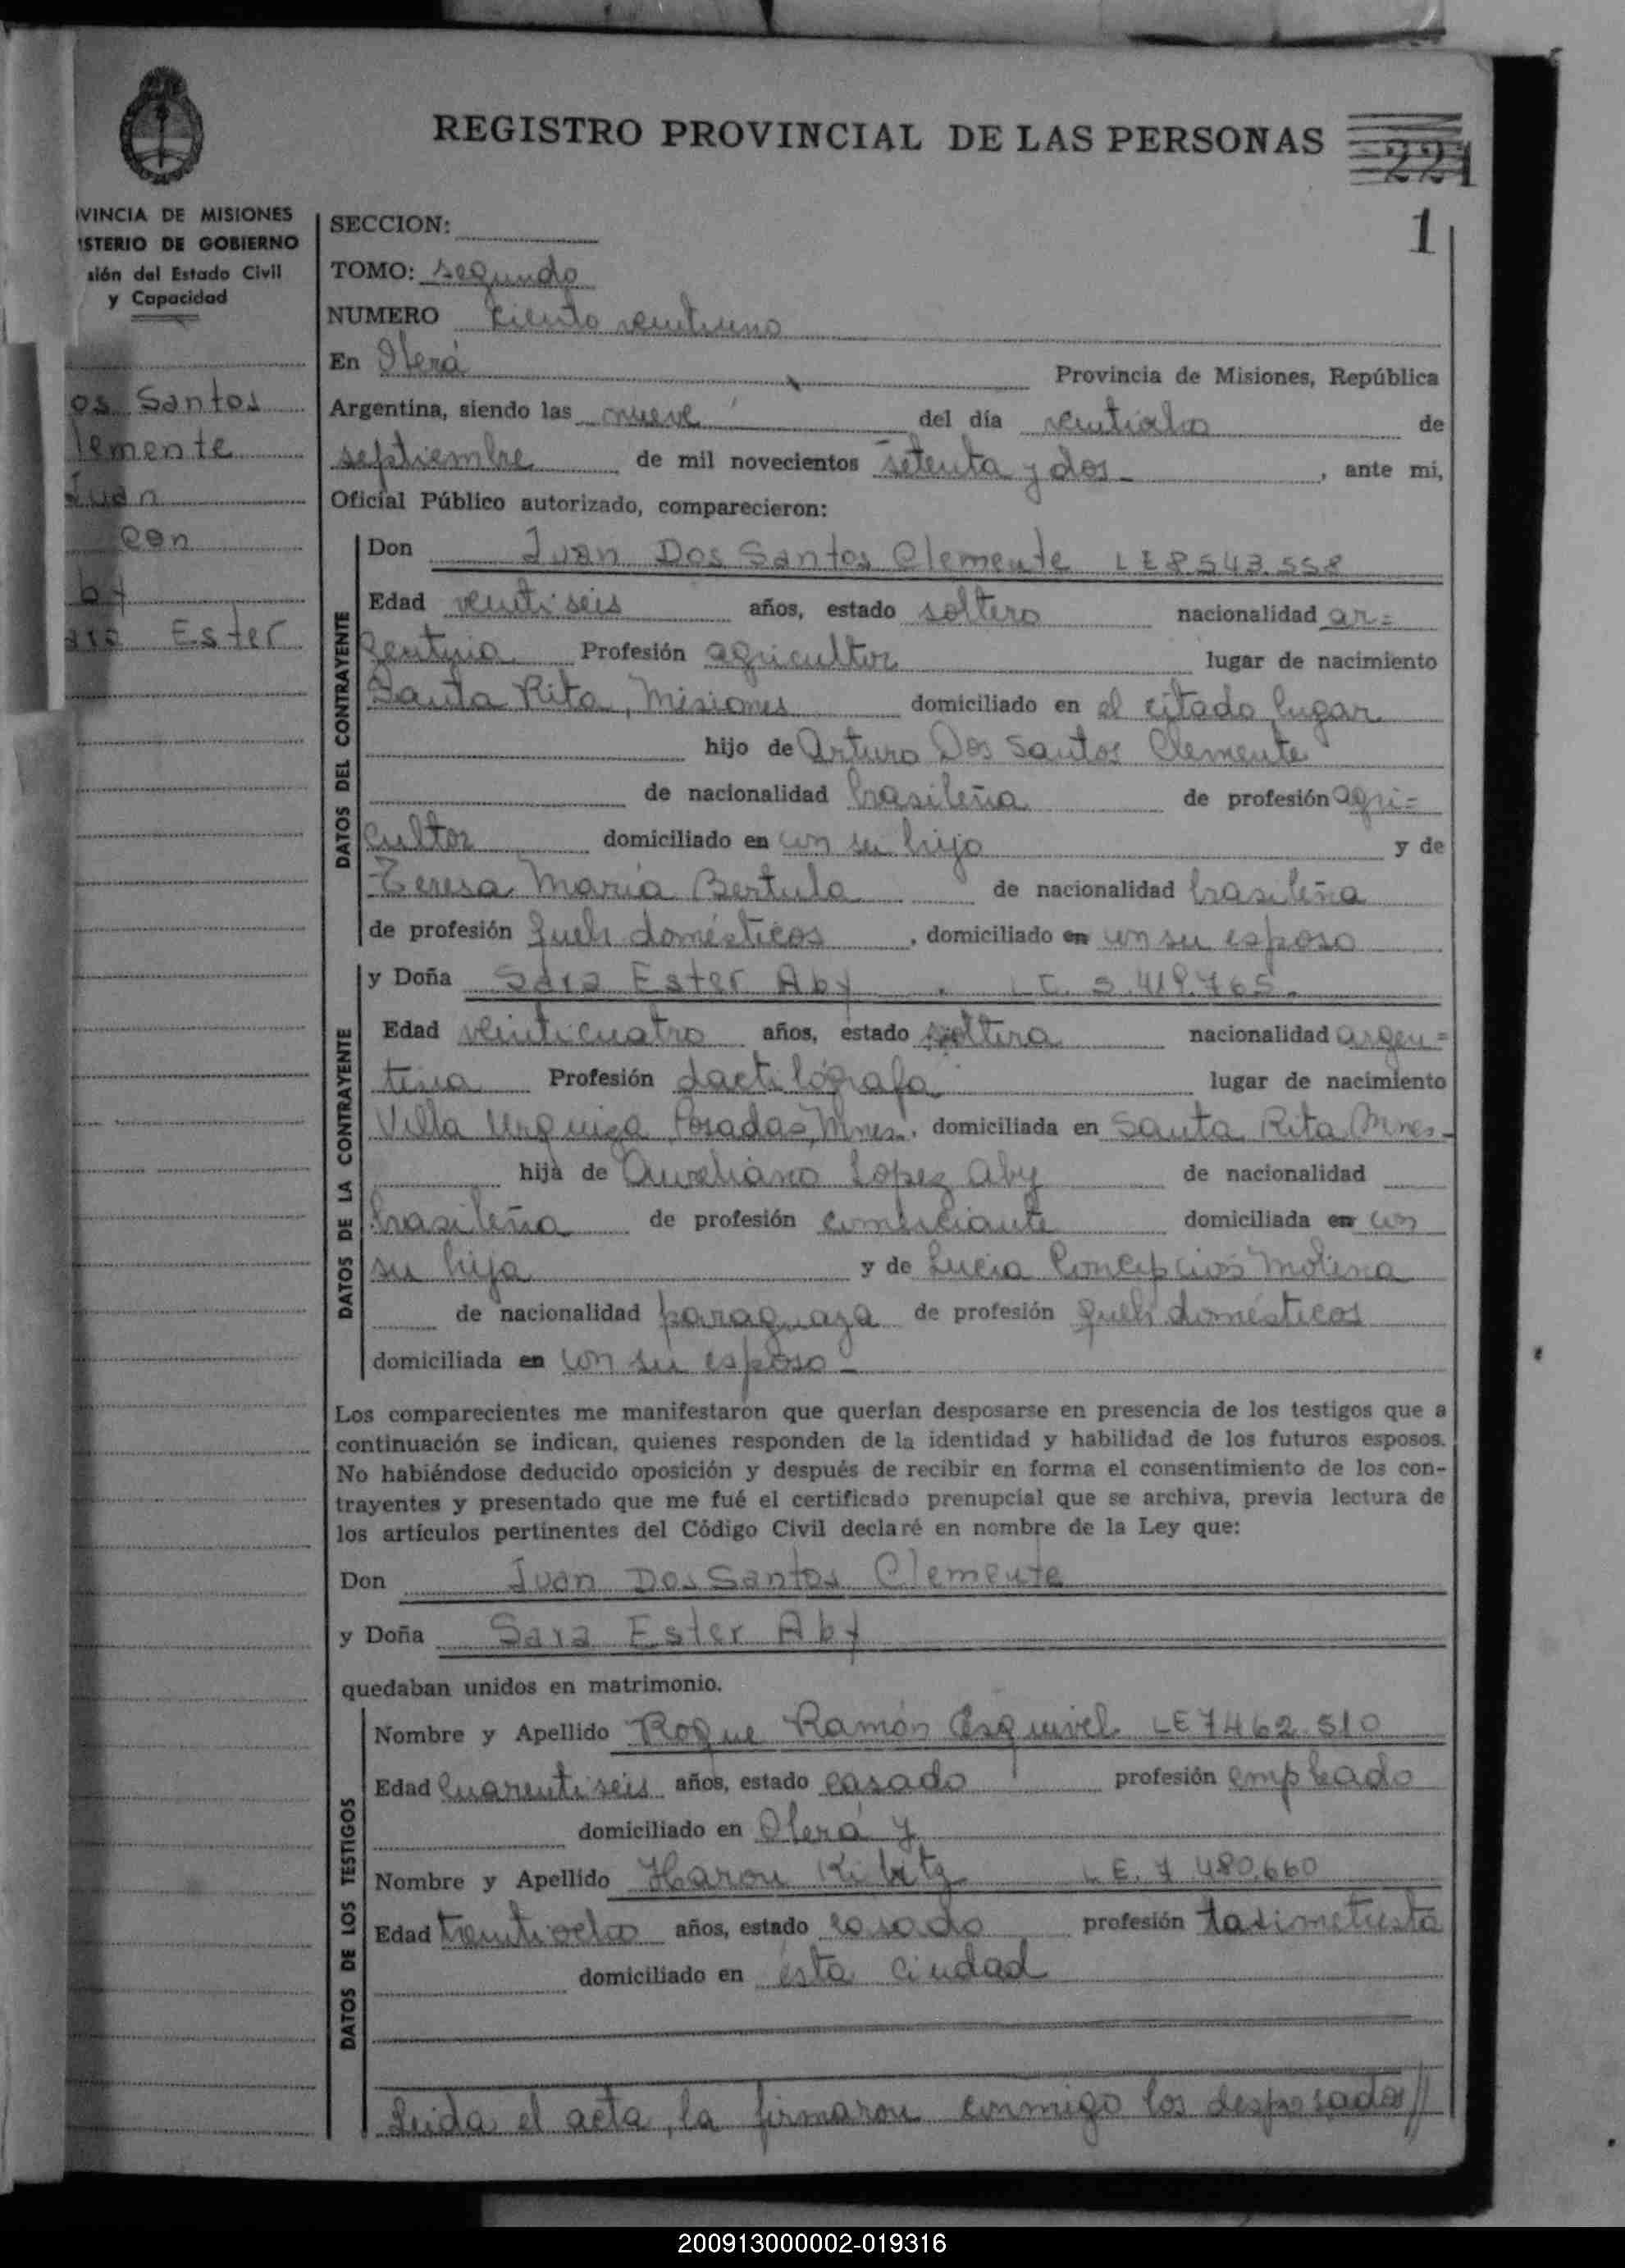 REGISTRO PROVINCIAL DE LAS PERSONAS
221
1
VINCIA DE MISIONES
ISTERIO DE GOBIERNO
sión del Estado Civil
y Capacidad
os Santos
lemente
Juan
con
by
ara Ester
SECCION:
TOMO: segundo
NUMERO ciento veintiuno
En Oberá Provincia de Misiones, República
Argentina, siendo las nueve del día veintiocho de
septiembre de mil novecientos setenta y dos, ante mi,
Oficial Público autorizado, comparecieron:
DATOS DEL CONTRAYENTE
Don Juan Dos Santos Clemente LE 8543.558
Edad veintiseis años, estado soltero nacionalidad ar=
gentina Profesión agricultor lugar de nacimiento
Santa Rita, Misiones domiciliado en el citado lugar
hijo de Arturo Dos Santos Clemente
de nacionalidad brasileña de profesión agri=
cultor domiciliado en con su hijo y de
Teresa Maria Bertulo de nacionalidad brasileña
de profesión queh domésticos, domiciliado en con su esposo
DATOS DE LA CONTRAYENTE
y Doña Sara Ester Aby L C. 5.419.765.
Edad veinticuatro años, estado soltera nacionalidad argen=
tina Profesión dactilógrafa lugar de nacimiento
Villa Urquiza Posadas, Mnes., domiciliada en Santa Rita Mnes-
hija de Aureliano Lopez Aby de nacionalidad
brasileña de profesión comerciante domiciliada en con
su hija y de Lucia Concepcion Molina
de nacionalidad paraguaya de profesión queh domésticos
domiciliada en con su esposo-
Los comparecientes me manifestaron que querían desposarse en presencia de los testigos que a
continuación se indican, quienes responden de la identidad y habilidad de los futuros esposos.
No habiéndose deducido oposición y después de recibir en forma el consentimiento de los con-
trayentes y presentado que me fué el certificado prenupcial que se archiva, previa lectura de
los artículos pertinentes del Código Civil declaré en nombre de la Ley que:
Don Juan Dos Santos Clemente
y Doña Sara Ester Aby
quedaban unidos en matrimonio.
DATOS DE LOS TESTIGOS
Nombre y Apellido Roque Ramón Esquivel LE 7462.510
Edad cuarentiseis años, estado casado profesión empleado
domiciliado en Oberá y
Nombre y Apellido L E. 7.480.660
Edad treintiocho años, estado casado profesión taximetrista
domiciliado en ésta ciudad
Leida el acta, la firmaron conmigo los desposados//
200913000002-019316